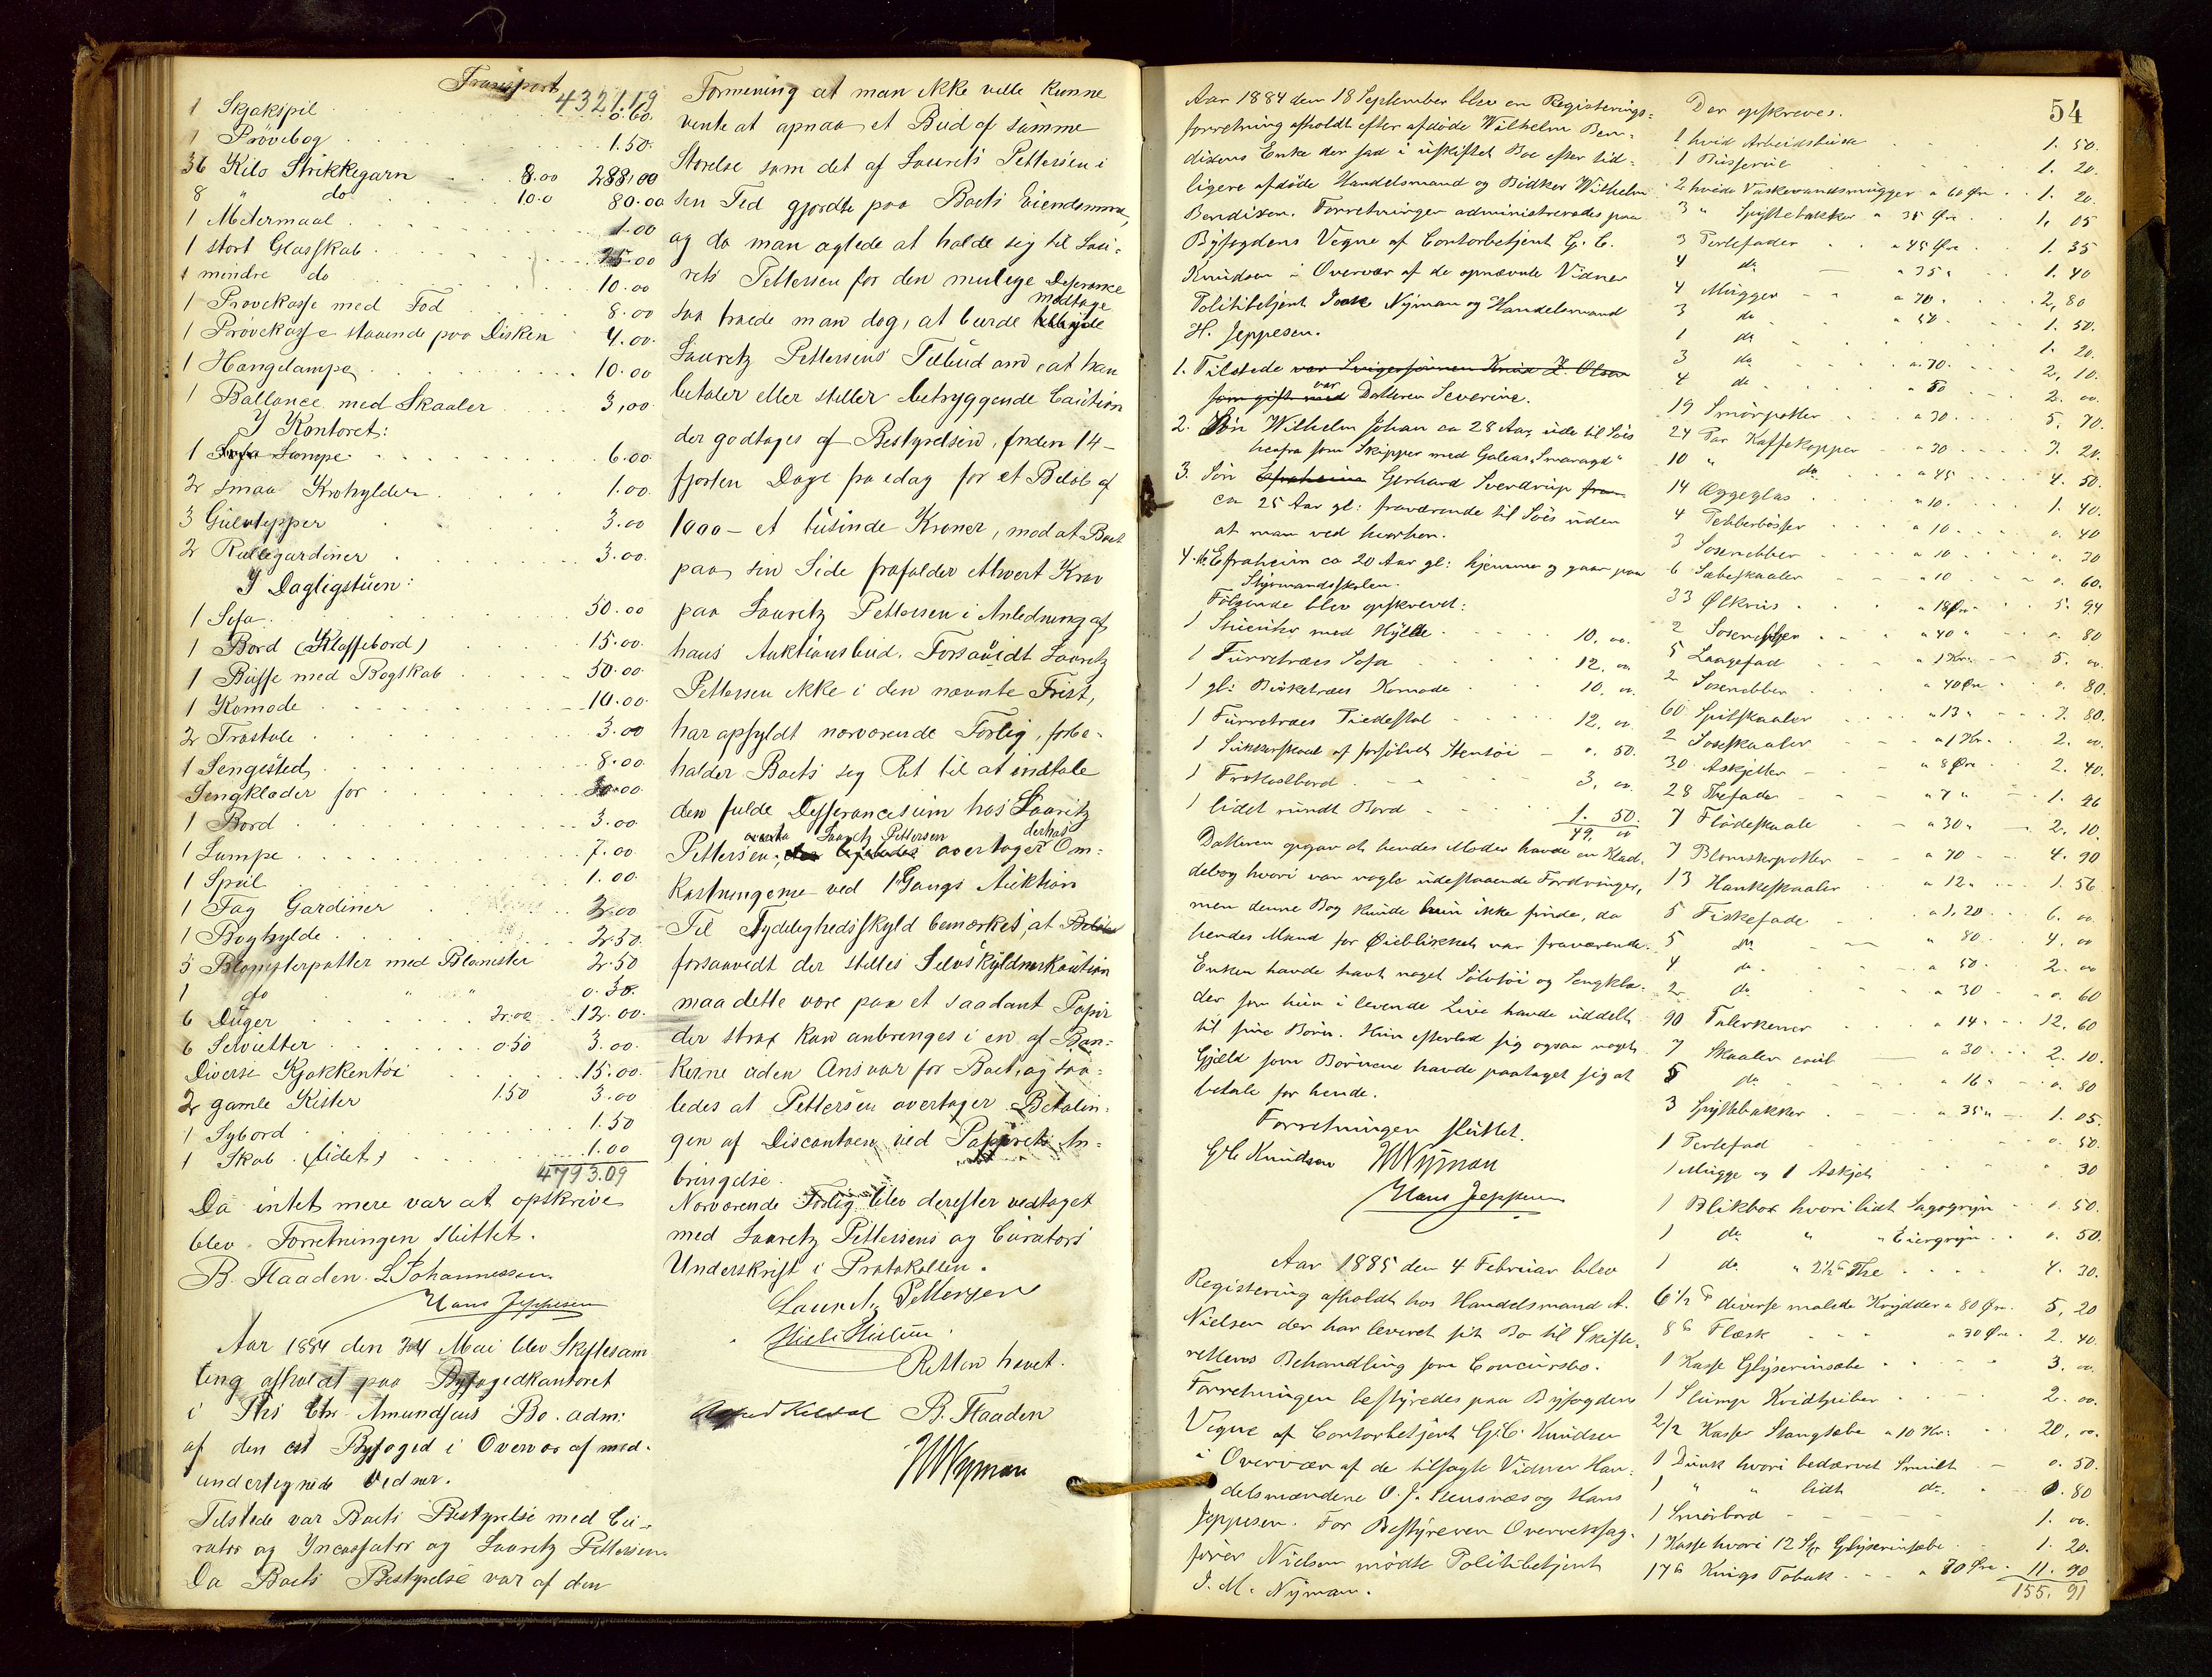 Transport 4321.19
1 Skjakspil . . 0.60.
1 Prövebog . . . 1.50.
36 Kilo Strikkegarn . . 8.00 288.00
8 " do 10.0 80.00
1 Metermaal . . . 1.00
1 stort Glasskab . . . 25.00
1 mindre do 10.00
1 Provekasse med Fod 8.00
1 Provekasse staaende paa Disken 4.00.
1 Hangelampe . . . 10.00
1 Ballance med Skaaler . . . 3,00
I Kontoret:
1 Lampe . . . 6.00
2 smaa Krohylder . . . 1.00.
3 Gulvtepper . . . 3.00
2 Rullegardiner . . . 3.00.
I Dagligstuen:
1 Sofa . . . 50.00
1 Bord (Klaffebord) . . 15.00.
1 Büffe med Bogskab . . . 50.00
1 Komode . . . 10.00.
2 Trostole . . . 3.00
1 Sengested . . . 8.00
Sengklæder for . . . 30.00
1 Bord . . . 3.00
1 Lampe . . . 7.00
1 Speil . . . 1.00.
1 Fag Gardiner . . . 2.00
1 Boghylde . . . 2.50.
5 Blomsterpotter med Blomster 2.50
1 do " " 0.30.
6 Duger . . 2.00 12.00.
6 Servietter . . . 0.50 3.00.
Diverse Kjøkkentöi . . . 15.00.
2 gamle Kister 1.50 3.00
1 Sybord . . . 1.50
1 Skab (lidet) . . . 1.00
4793.09
Da intet mere var at opskrive
blev Forretningen sluttet.
B. Flaaden. L. Johannessen.
Hans Jeppesen
Aar 1884 den 24 Mai blev Skiftesam
ling afholdt paa Byfogedkantoret
i Ths Chr Amundsens Bo. adm:
af den cst Byfoged i Overvær af med-
undertegnede Vidner.
Tilstede var Boets Bestyrelse med Cu-
rator og Incassator og Lauretz Pettersen.
Da Boets Bestyrelse var af den
Formening at man ikke ville kunne
vente at opnaa et Bud af samme
Størelse som det af Lauretz Pettersen i
sin Tid gjordte paa Boets Eiendomme,
og da man agtede at holde sig til Lau-
retz Pettersen for den mulige Differance
saa troede man dog, at burde modtage
Lauretz Pettersens Tilbud om, at han
betaler eller stiller betryggende Caution
der godtages af Bestyrelsen, inden 14-
fjorten Dage fra idag for et Beløb af
1000 - et tusinde Kroner, mod at Boet
paa sin Side frafalder ethvert Krav
paa Lauretz Pettersen i Anledning af
hans Auktionsbud. Forsavidt Lauretz
Pettersen ikke i den nævnte Frist,
har opfyldt nærværende Forlig, forbe-
holder Boets sig Ret til at indtale
den fulde Differancesum hos Lauritz
Pettersen; Lauretz Pettersen overtager derhos Om-
kostningerne ved 1 Gangs Auktion
Til Tydelighedsskyld bemærkes, at
forsaavidt der stilles Selvskyldnerkaution
maa dette være paa et saadant Papir
der strax kan anbrenges i en af Ban-
kerne uden Ansvar for Boet, og saa-
ledes at Pettersen overtager Betalin-
gen af Discontoen ved Papirets An-
bringelse.
Nærværende Forlig blev derefter vedtaget
med Lauretz Pettersens og Curators
Underskrift i Protokollen.
Lauretz Pettersen
Retten hævet.
B. Flaaden
JMNyman
54
Aar 1884 den 18 September blev en Registerings-
forretning afholdt efter afdöde Wilhelm Ben-
dixens Enke der sad i uskiftet Boe efter tid-
ligere afdöde Handelsmand og Bödker Wilhelm
Bendixen. Forretningen administreredes paa
Byfogdens Vegne af Contorbetjent G. C.
Knudsen i Overvær af de opnævnte Vidner
Politibetjent Isak Nyman og Handelsmand
H. Jeppesen.
1. Tilstede var Svigersönnen Knud Z. Olsen
som gift med var Datteren Severine.
2. Sön Wilhelm Johan ca 28 Aar, ude til Søis
herfra som Skipper med Galeas "Smaragd"
3. Sön Gerhard Sverdrup
ca 25 Aar gl: fraværende til Søis uden
at man ved hvorhen.
4. Efraheim ca 20 Aar gl: hjemme og gaar paa
Styrmandsskolen.
Følgende blev opskrevet:
1 Stueuhr med Hylde . . . 10. 00.
1 Furretræes Sofa . . . 12. 00
1 gl: Birketræes Komode . . 10. 00.
1 Furretræes Piedestal . . . 12. 00
1 Sukkerskaal af forsölvet Stentöi - 0. 50.
1 Frokostbord . . . 3. 00
1 lidet rundt Bord . . . 1. 50.
49. 00
Datteren opgav at hendes Moder havde en Klad-
debog hvori var nogle udestaaende Fordringer,
men denne Bog kunde hun ikke finde, da
hendes Mand for Øieblikket var fraværende.
Enken havde havt noget Sölvtöi og Sengklæ-
der som hun i levende Live havde uddelt
til sine Börn. Hun efterlod sig ogsaa noget
Gjæld som Börnene havde paataget sig at
betale for hende.
Forretningen sluttet.
G C Knudsen JMNyman
Hans Jeppesen
Aar 1885 den 4 Februar blev
Registering afholdt hos Handelsmand A.
Nielsen der har leveret sit Bo til Skifte-
rettens Behandling som Concursbo.
Forretningen bestyredes paa Byfogdens
Vegne af Contorbetjent G. C. Knudsen
i Overvær af de tilsagte Vidner Han-
delsmændene O. J. Stensnæs og Hans
Jeppesen. For Bestyreren Overretssag-
förer Nielsen mødte Politibetjent
J. M. Nyman.
Der opskreves.
1 hvid Arbeidsbuxe . . . 1. 50.
1 Busserul . . . 1. 20.
2 hvide Vaskevandsmugger a 60 Øre . 1. 20.
3 " Spistebakker a 35 Øre . 1. 05
3 Terlefader . . a 45 Øre . . 1. 35
4 do — a 35 " . . 1. 40
4 Mugger - - a 70 . . . 2, 80
3 do . a 50 . . . 1. 50.
1 do . . . 1. 20.
3 do . . a. 70. . . 2. 10.
4 do . . a 50 . . 2. 00.
19 Smörpotter . . . a 30 . . . 5. 70.
24 Par Kaffekopper - a 30 . . . 7. 20.
10 " do - a 45 . . . 4. 50.
14 Æggeglas . . . a 10. . . . 1. 40.
4 Pebberbösser . . . a 10. . . . 0. 40
3 Sosenebber - - - a 10 - - - 0. 30
6 Sæbeskaaler - - a 10 - - 0. 60.
33 Ølkrus . . . a 18 Øre . . 5. 94
2 . . . a 40 " . . 0. 80
5 Laagefad . . . a 1 Kr. - - 5. 00
2 Sosenebber . . a 40 Øre . . 0. 80.
60 Spilskaaler . . . a 13 " . . . 7. 80.
2 Soseskaaler . . a 1 Kr. . . 2. 00.
30 Askjetter - - a 8 Øre . . 2. 40.
28 Thefade - - a 7 " . . 1. 96
7 Flödeskaale - - a 30 " - - 2. 10.
7 Blomsterpotter - - a 70 - - 4. 90
13 Hankeskaaler . . a 12 " . . . 1. 56
5 Fiskefade - - a 1. 20 . . . 6. 00
5 do - - a 80 . . . 4. 00
4 do . . a 50 . . . 2. 00
2 do . . a 30 . . . 0. 60
90 Talerkener . . . a 14 " . . 12. 60
7 Skaaler coul . . a 30 . . . 2. 10.
5 do . . . a 16 " . . 0. 80
3 Spyttebakker . . . a 35 " - 1. 05.
1 Terlefad . . . 0. 50.
1 Mugge og 1 Askjet . . . " 30
1 Blikbox hvori lidt Sagogryn . . 0. 50.
1 do " " Eiergryn . . 0. 50.
1 do " 2½ ℔ The . . . 4. 30.
6½ ℔ diverse malede Krydder a 80 Øre . 5, 20
8 ℔ Flæsk . . . a 30 Øre . 2. 40.
1 Kasse Glyserinsæbe . . . 3. 00.
1 Slump Kridtpiber . . . 2. 00.
2/2 Kasser Stangsæbe a 10 Kr. . . 20, 00.
1 Dunk hvori bedærvet Smult . - 0. 50.
1 " " lidt do . . 0. 80
1 Smörbord . . . 1. 00.
1 Kasse hvori 12 St. Glyserinsæbe . . 1. 20.
17 ℔ Krings Tobak . . . a 70 Øre - 11. 90
155, 91